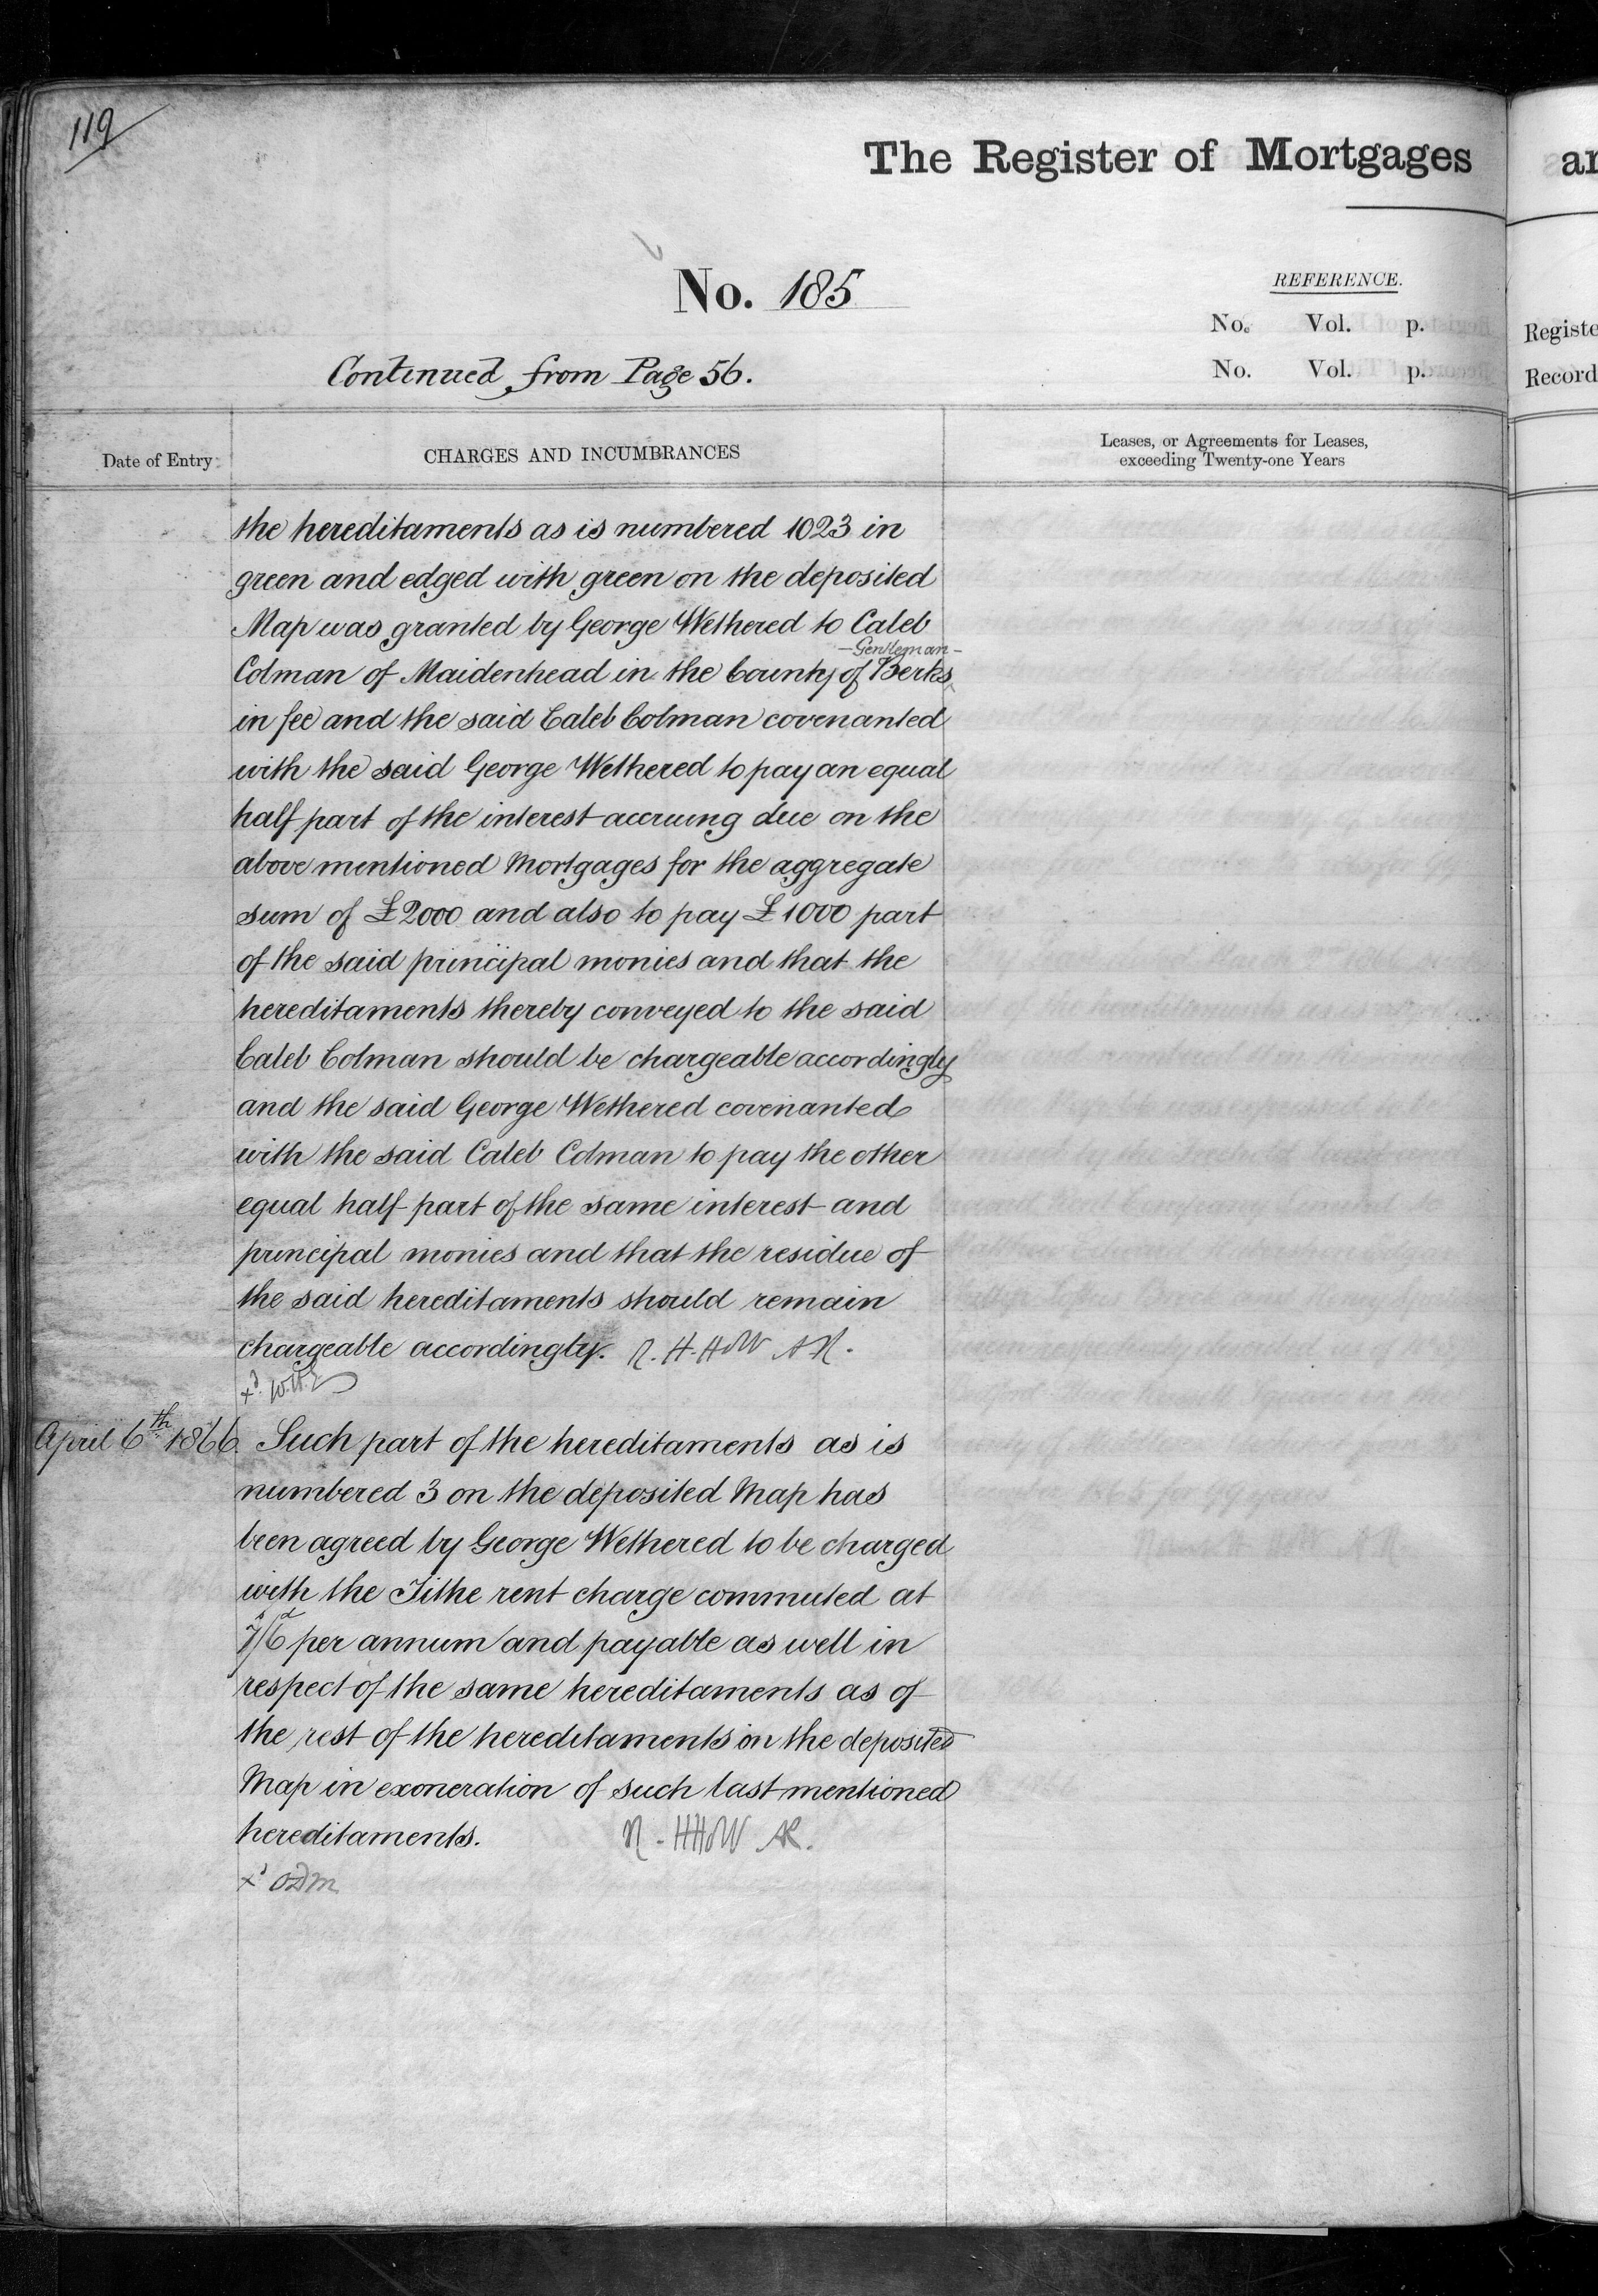 119
The Register of Mortgages
No. 185
REFERENCE.
No. Vol. p.
No. Vol. p.
Continued from Page 56.
Date of Entry
CHARGES AND INCUMBRANCES
Leases, or Agreements for Leases,
exceeding Twenty-one Years
the hereditaments as is numbered 1023 in
green and edged with green on the deposited
Map was granted by George Wethered to Caleb
Gentleman
Colman of Maidenhead in the County of Berks
in fee and the said Caleb Colman covenanted
with the said George Wethered to pay an equal
half part of the interest accruing due on the
above mentioned Mortgages for the aggregate
sum of £2000 and also to pay £1000 part
of the said principal monies and that the
hereditaments thereby conveyed to the said
Caleb Colman should be chargeable accordingly
and the said George Wethered covenanted
with the said Caleb Colman to pay the other
equal half part of the same interest and
principal monies and that the residue of
the said hereditaments should remain
chargeable accordingly.
April 6th 1866. Such part of the hereditaments as is
numbered 3 on the deposited Map has
been agreed by George Wethered to be charged
with the Tithe rent charge commuted at
7s/6d per annum and payable as well in
respect of the same hereditaments as of
the rest of the hereditaments on the deposited
Map in exoneration of such last mentioned
hereditaments.
Registe
Record